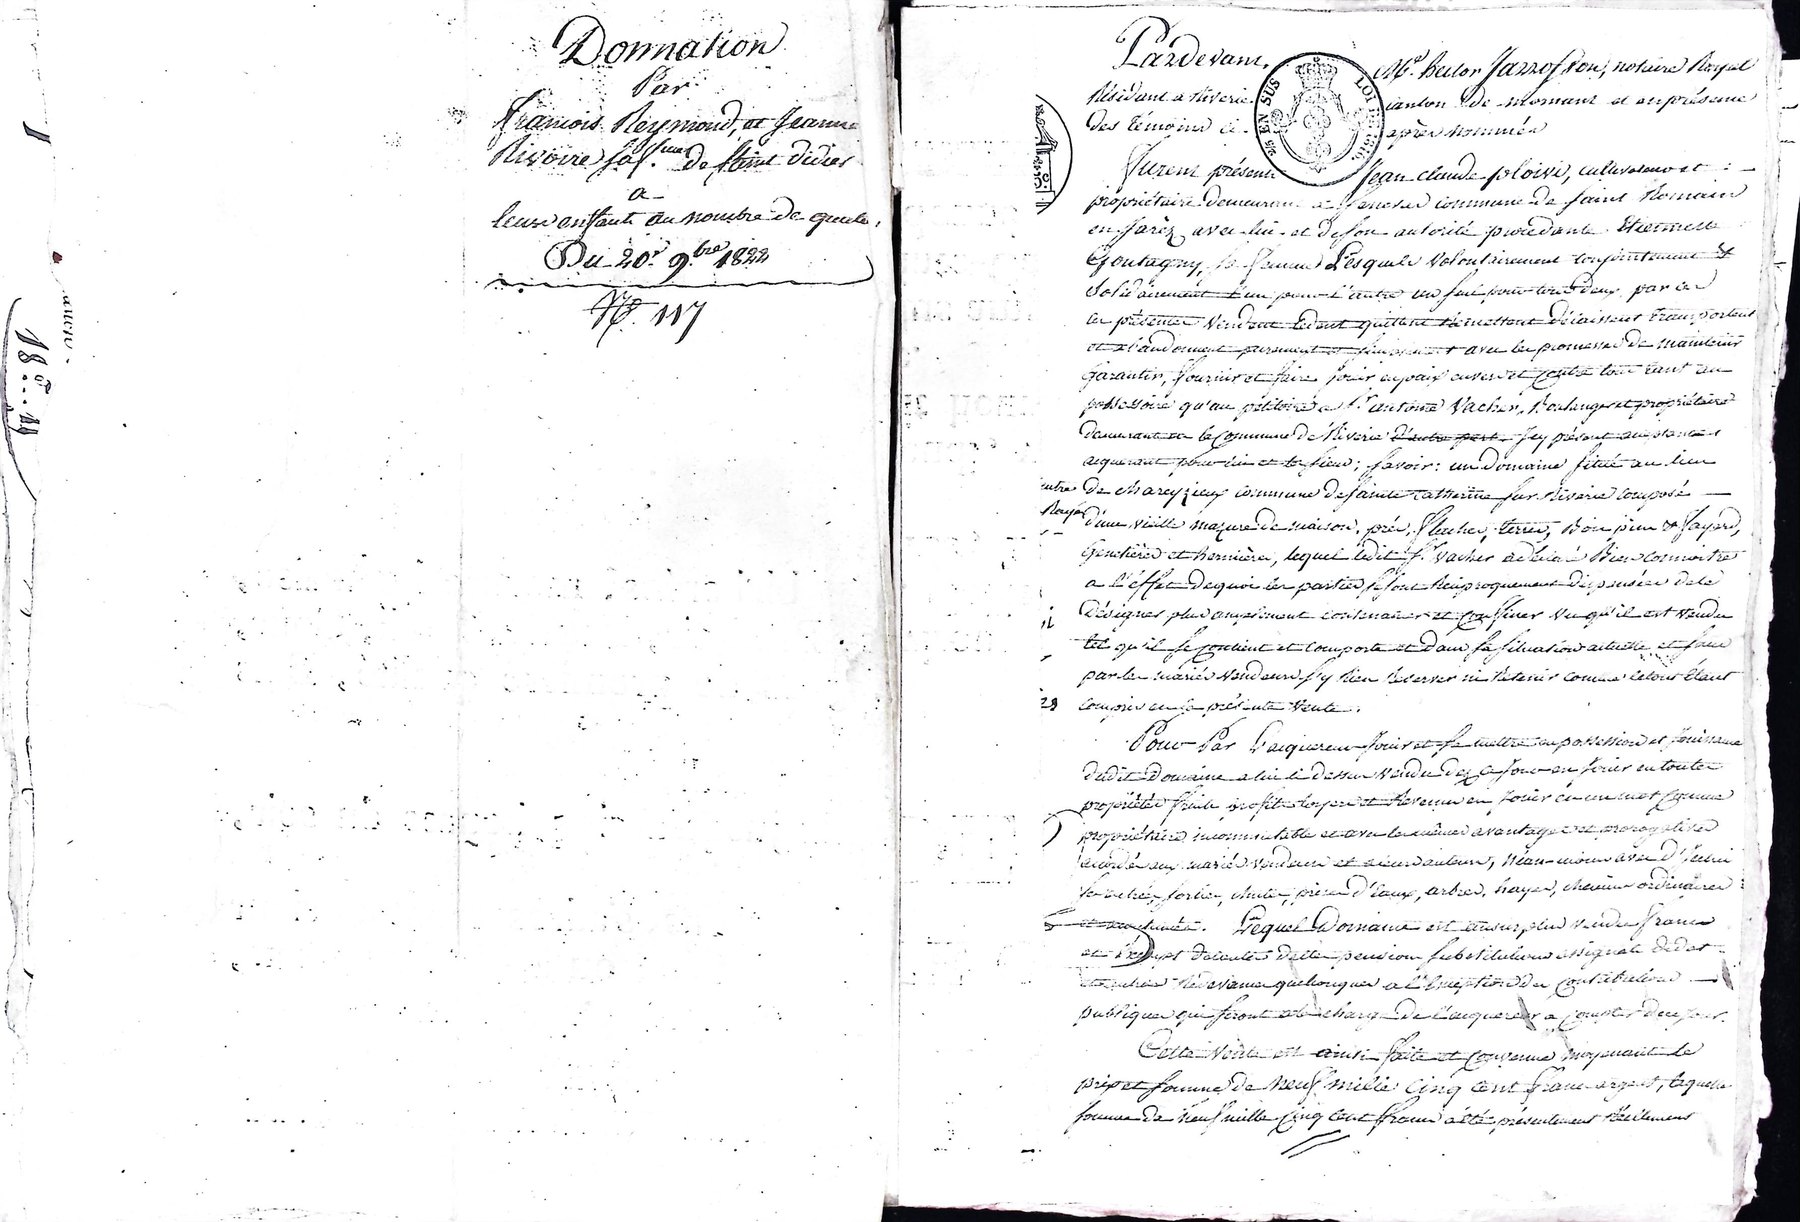 Donnation
Par
francois Reymond, et Jeanne
Rivoire sa f.me de saint didier
a
leurs enfants au nombre de quatre.
Du 20. 9.bre 1822
N.° 117
Pardevant, Me. hector Jarrosson, notaire Royal
Résidant a Riverie canton de mornant et en présence
des témoins ci-après nommés
EN SUS
LOI
furent présents Jean claude ploivi, cultivateur et
propriétaire demeurant a commune de saint Romain
en Jarèz avec lui et de son autorité procédante Etiennette
Goutagny, sa femme Lesquels volontairement conjointement &
solidairement l'un pour l'autre un seul pour tous deux par ces
ces présentes Vendent cedent quittent Remettent délaissent transportent
et abandonnent purement et simplement avec les promesses de maintenir
Garantir, fournir et faire Jouir en paix envers et contre tous tant au
possessoire qu'au pétitoire a Sr antoine Vacher, Boulanger et propriétaire
demeurant en la Commune de Riverie D'autre part Icy présent acceptant
acquerant pour lui et les siens; savoir: un domaine situé au lieu
de chareyzieux commune de sainte catherine sur Riverie composé
d'une vieille mazure de maison, prés, terres, Bois pins & fayard,
Genetières et hermières, lequel ledit Sr Vacher a déclaré Bien connoitre
a l'effet de quoi les parties se sont Réciproquement dispensées de le
Désigner plus amplement contenance et confiner vu qu'il est vendu
tel qu'il se contient et comporte et dans sa situation actuelle et sans
par les mariés Vendeurs s'y Rien Réserver ni Retenir comme letout Etant
compris en la présente Vente.
Pour Par L'acquereur Jouir et se mettre en possession et Jouissance
dudit Domaine a lui ci dessus vendu dez ce Jour en Jouir en toutes
propriétés fruits profits loyers et Revenus en Jouir en un mot Comme
propriétaire incommutable et avec les mêmes avantages et prérogatives
accordés aux mariés vendeurs et a leurs auteurs, Néan-moins avec
entrées, sorties, chute, prises d'Eaux, arbres, hayes, chemins ordinaires
et accoutumés. Lequel Domaine est au surplus vendu franc
et Exempt de toutes dettes pensions substitutions assignats dedot
et autres Redevances quelconques a l'Exception des Contributions
publiques qui seront a la charge de l'acquereur a compter de ce Jour.
Cette Vente est ainsi faite et convenue moyenant le
prix et somme de Neuf mille Cinq cent franc argent, laquelle
somme de Neuf mille Cinq Cent francs a été présentement Réellement